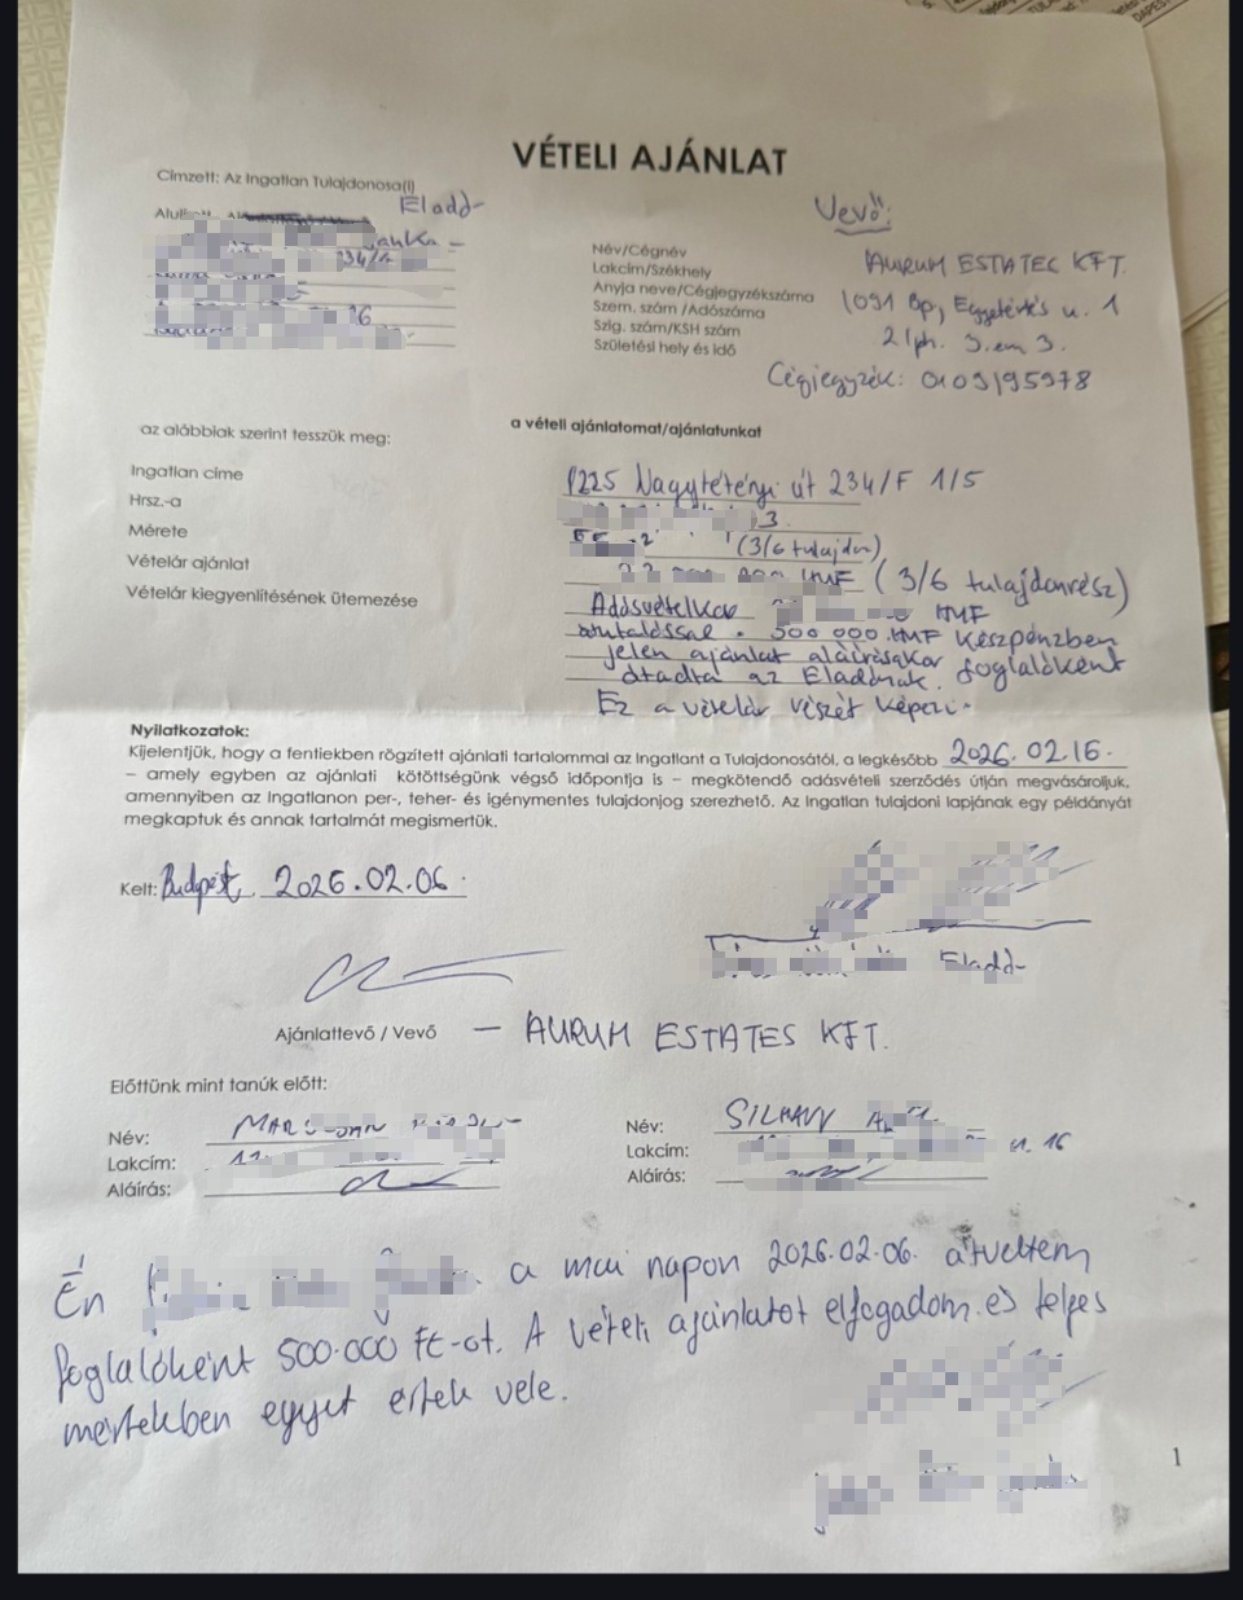 VÉTELI AJÁNLAT
Címzett: Az Ingatlan Tulajdonosa(i)
Eladó
Vevő:
Név/Cégnév AURUM ESTATEC KFT.
Lakcím/Székhely
Anyja neve/Cégjegyzékszáma 1091 Bp, Egyetértés u. 1
Szem. szám /Adószáma
Szig. szám/KSH szám 2lph. 3.em 3.
Születési hely és idő
Cégjegyzék: 0109195978
az alábbiak szerint tesszük meg: a vételi ajánlatomat/ajánlatunkat
Ingatlan címe 1225 Nagytétényi út 234/F 1/5
Hrsz.-a
Mérete (3/6 tulajdon)
Vételár ajánlat HUF (3/6 tulajdonrész)
Vételár kiegyenlítésének ütemezése Adásvételkor HUF
átutalással. 500 000.HUF készpénzben
jelen ajánlat aláírásakor foglalóként
átadta az Eladónak.
Ez a vételár részét képezi.
Nyilatkozatok:
Kijelentjük, hogy a fentiekben rögzített ajánlati tartalommal az Ingatlant a Tulajdonosától, a legkésőbb 2026.02.16.
– amely egyben az ajánlati kötöttségünk végső időpontja is – megkötendő adásvételi szerződés útján megvásároljuk,
amennyiben az Ingatlanon per-, teher- és igénymentes tulajdonjog szerezhető. Az Ingatlan tulajdoni lapjának egy példányát
megkaptuk és annak tartalmát megismertük.
Kelt: Budapest, 2026.02.06.
Eladó
Ajánlattevő / Vevő — AURUM ESTATES KFT.
Előttünk mint tanúk előtt:
Név:
Lakcím:
Aláírás:
Név: SILHAVY
Lakcím: u. 16
Aláírás:
Én a mai napon 2026.02.06. átvettem
foglalóként 500.000 Ft-ot. A vételi ajánlatot elfogadom és teljes
mértékben egyet értek vele.
1